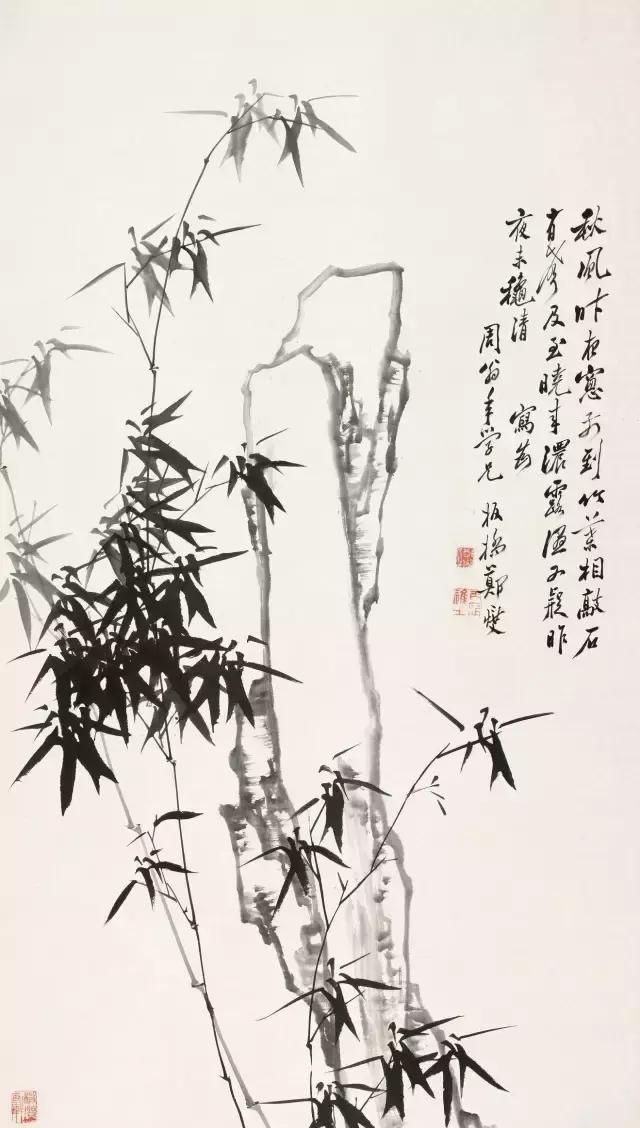 秋風昨夜窓前到竹葉相敲石
有聲及至曉來濃露濕又疑昨
夜未穐清 寫為
周翁年學兄 板橋鄭燮